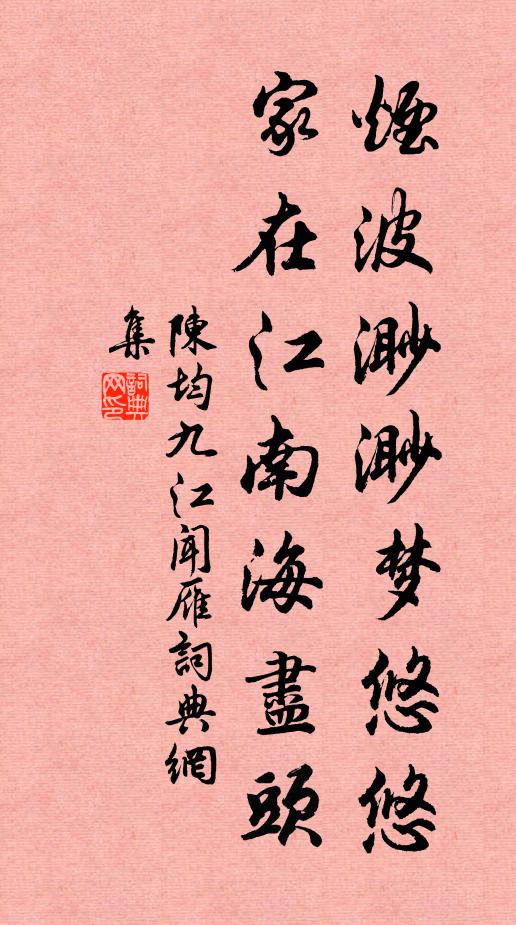 煙波渺渺梦悠悠
家在江南海盡頭
陳均九江闻雁詞典網
集
詞典
网印